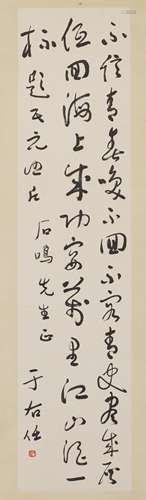 不信青春喚不回不容青史盡成灰
低回海上成功宴萬里江山酒一
杯 題民元照片
石鳴先生正
于右任